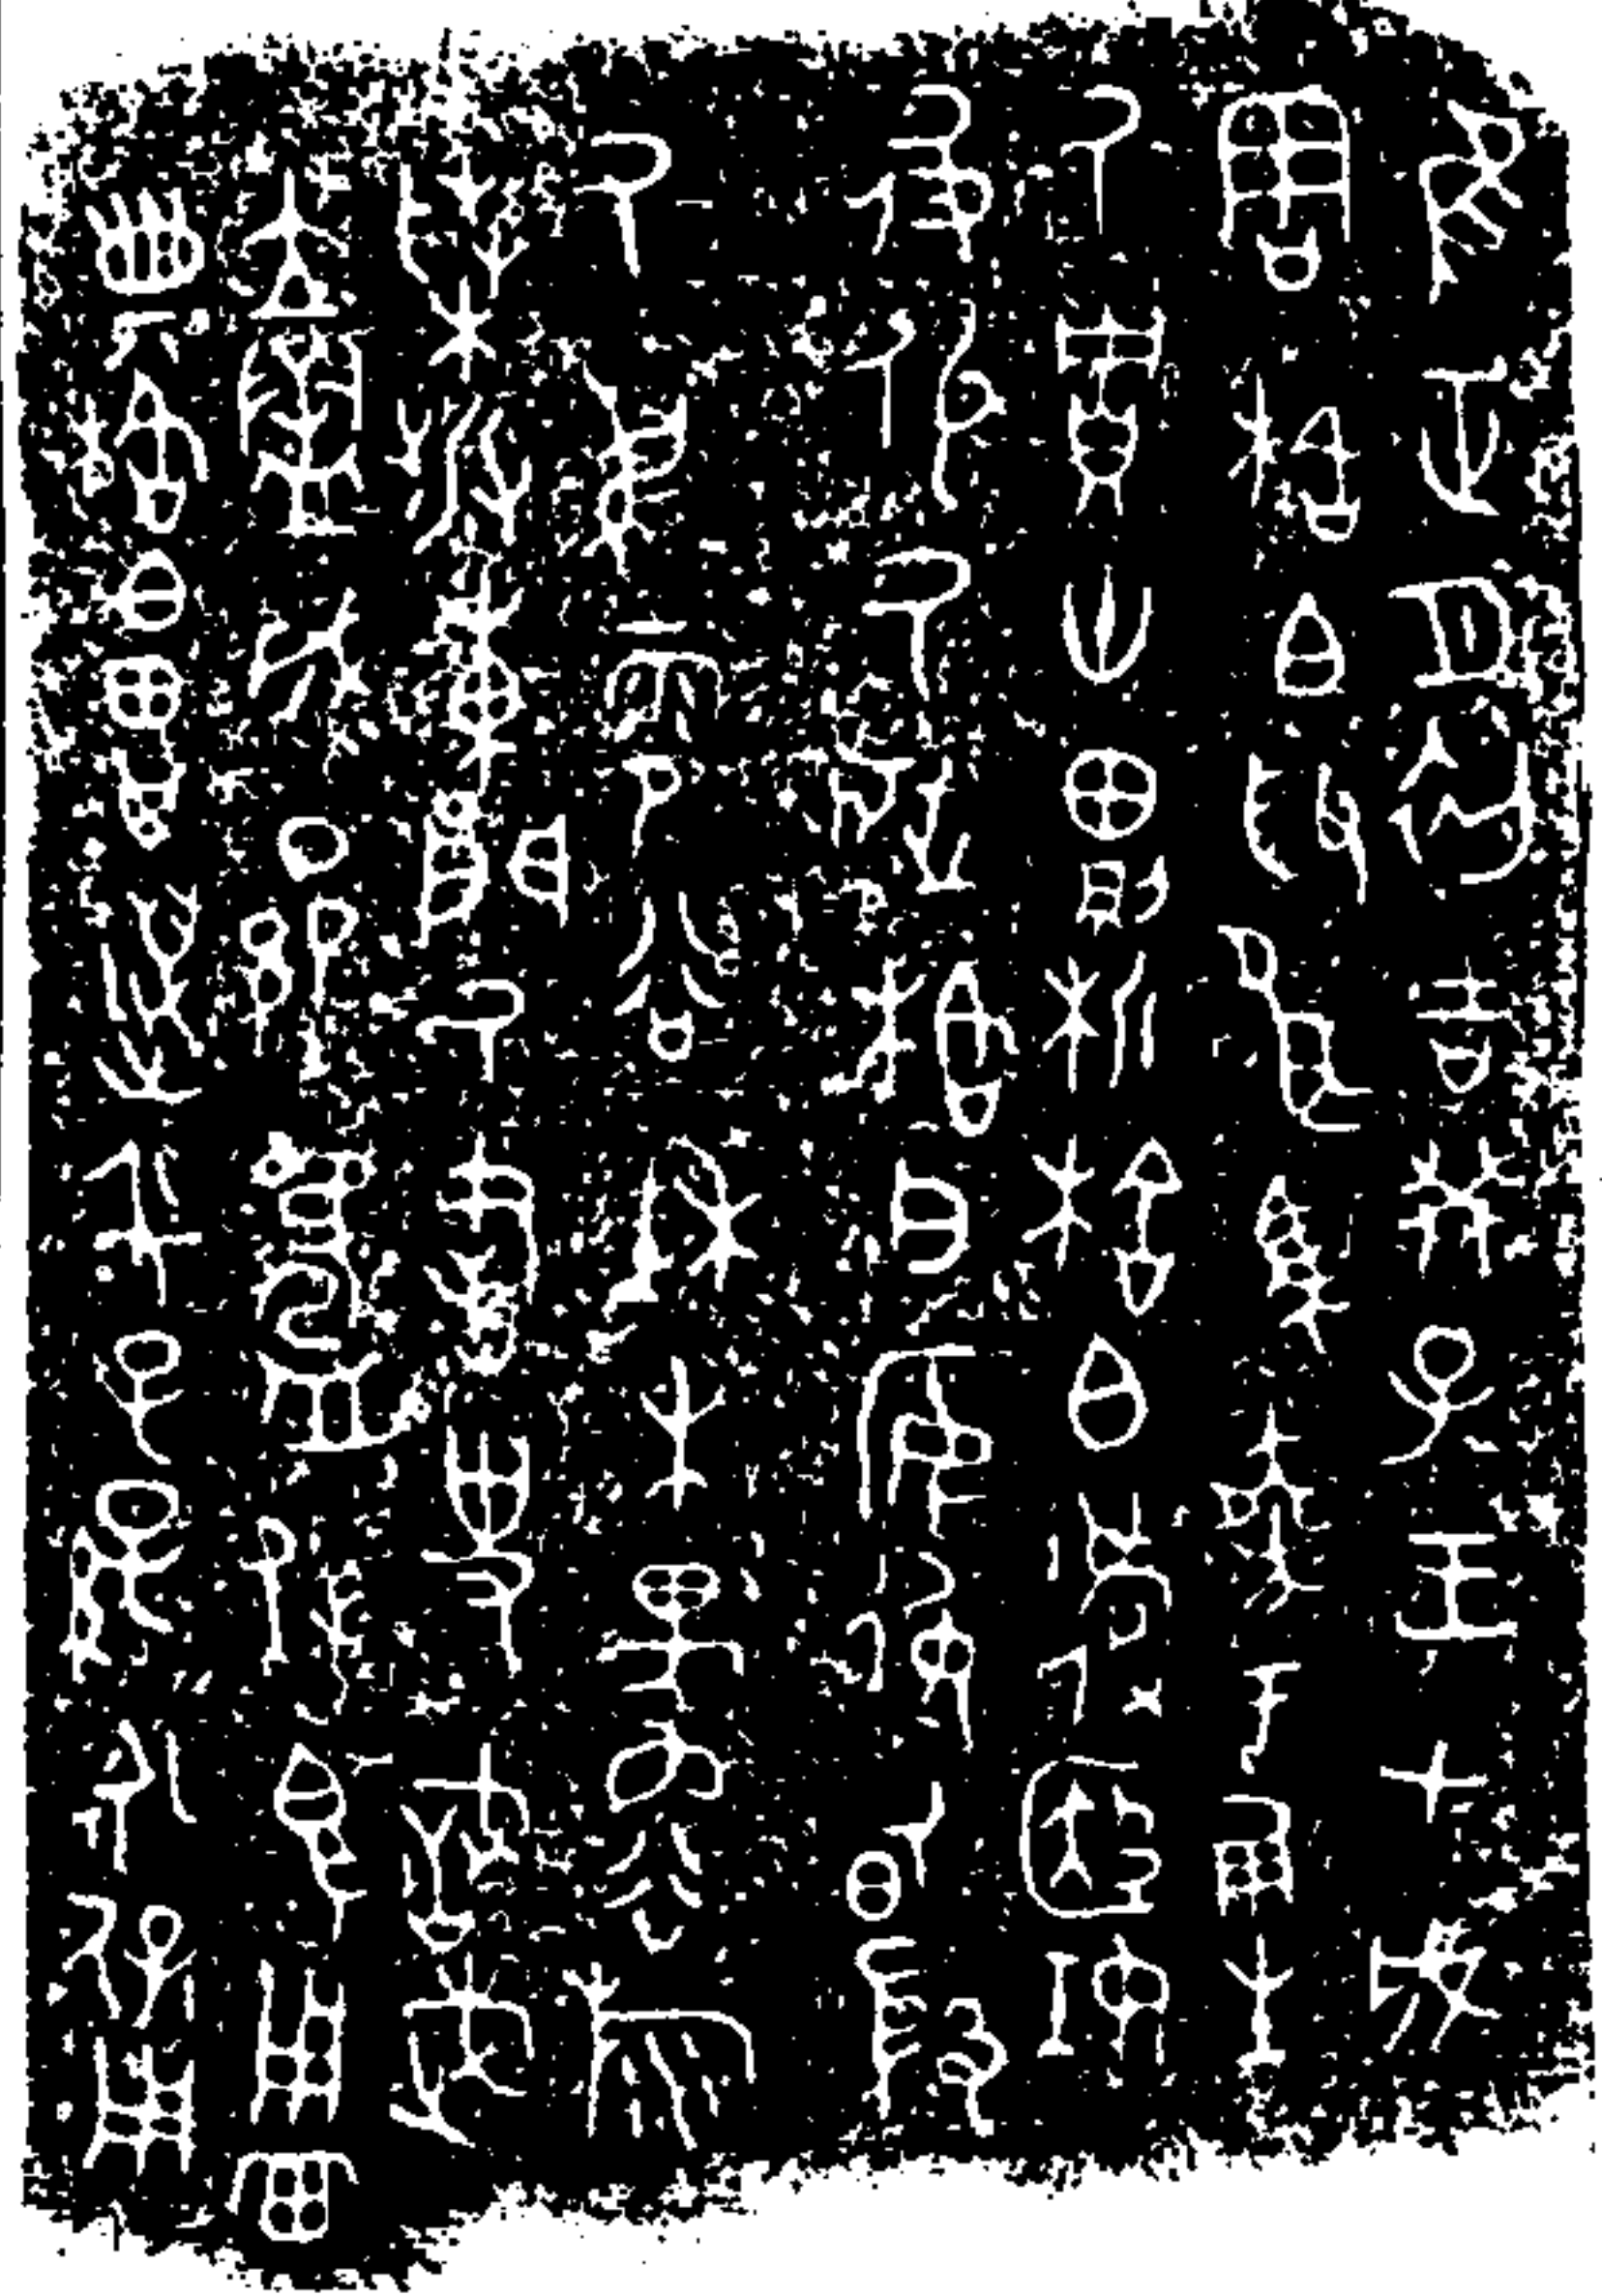 隹正月初吉癸巳王才成
周格白取良馬乘于倗生
氒貯卅田則析格白殹妊
彶氒從格白安彶甸殷
氒雩谷杜木谷旅
桑涉東門氒書史戠武
立成鑄保簋用
典格白田其邁年子子孫孫永保用周